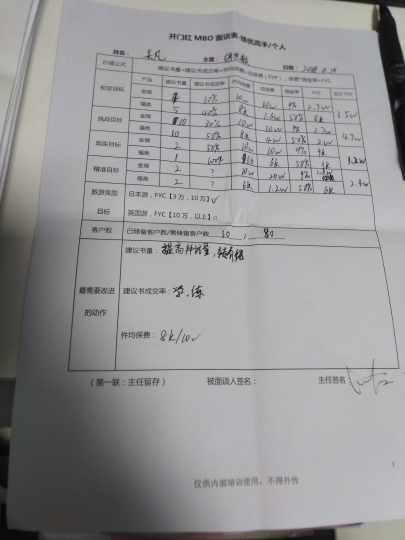 开门红 MBO 面谈表-绩优高手/个人
姓名： 主管： 日期：2018.11.19
价值公式 建议书量*建议书成交率*件均保费=总保费（FYP），保费*佣金率=FYC
产品 建议书量 建议书成交率 件均保费 总保费 佣金率 FYC 合计 FYC
初定目标 金瑞 10% 9% 2.7w 3.5w
福类 5 40% 8k 1.6w 50% 8k
挑战目标 金瑞 10 30% 10w 30w 9% 2.7w 4.7w
福类 10 50% 8k 4w 50% 2w
现实目标 金瑞 2 50% 10w 10w 9% 9k 1.2w
福类 1 100% 6k 6k 50% 3k
精准目标 金瑞 2 ? 10w 20w 9% 2.4w
福类 2 ? 6k 1.2w 50% 6k
旅游奖励 日本游，FYC【3 万，10 万】√
目标 英国游，FYC【10 万，以上】□
客户数 已储备客户数/需储备客户数 30 , 80
最需要改进的动作
建议书量：提高件均量，转介绍
建议书成交率：学，练
件均保费：8k/10w
（第一联：主任留存） 被面谈人签名： 主任签名：
仅供内部培训使用，不得外传